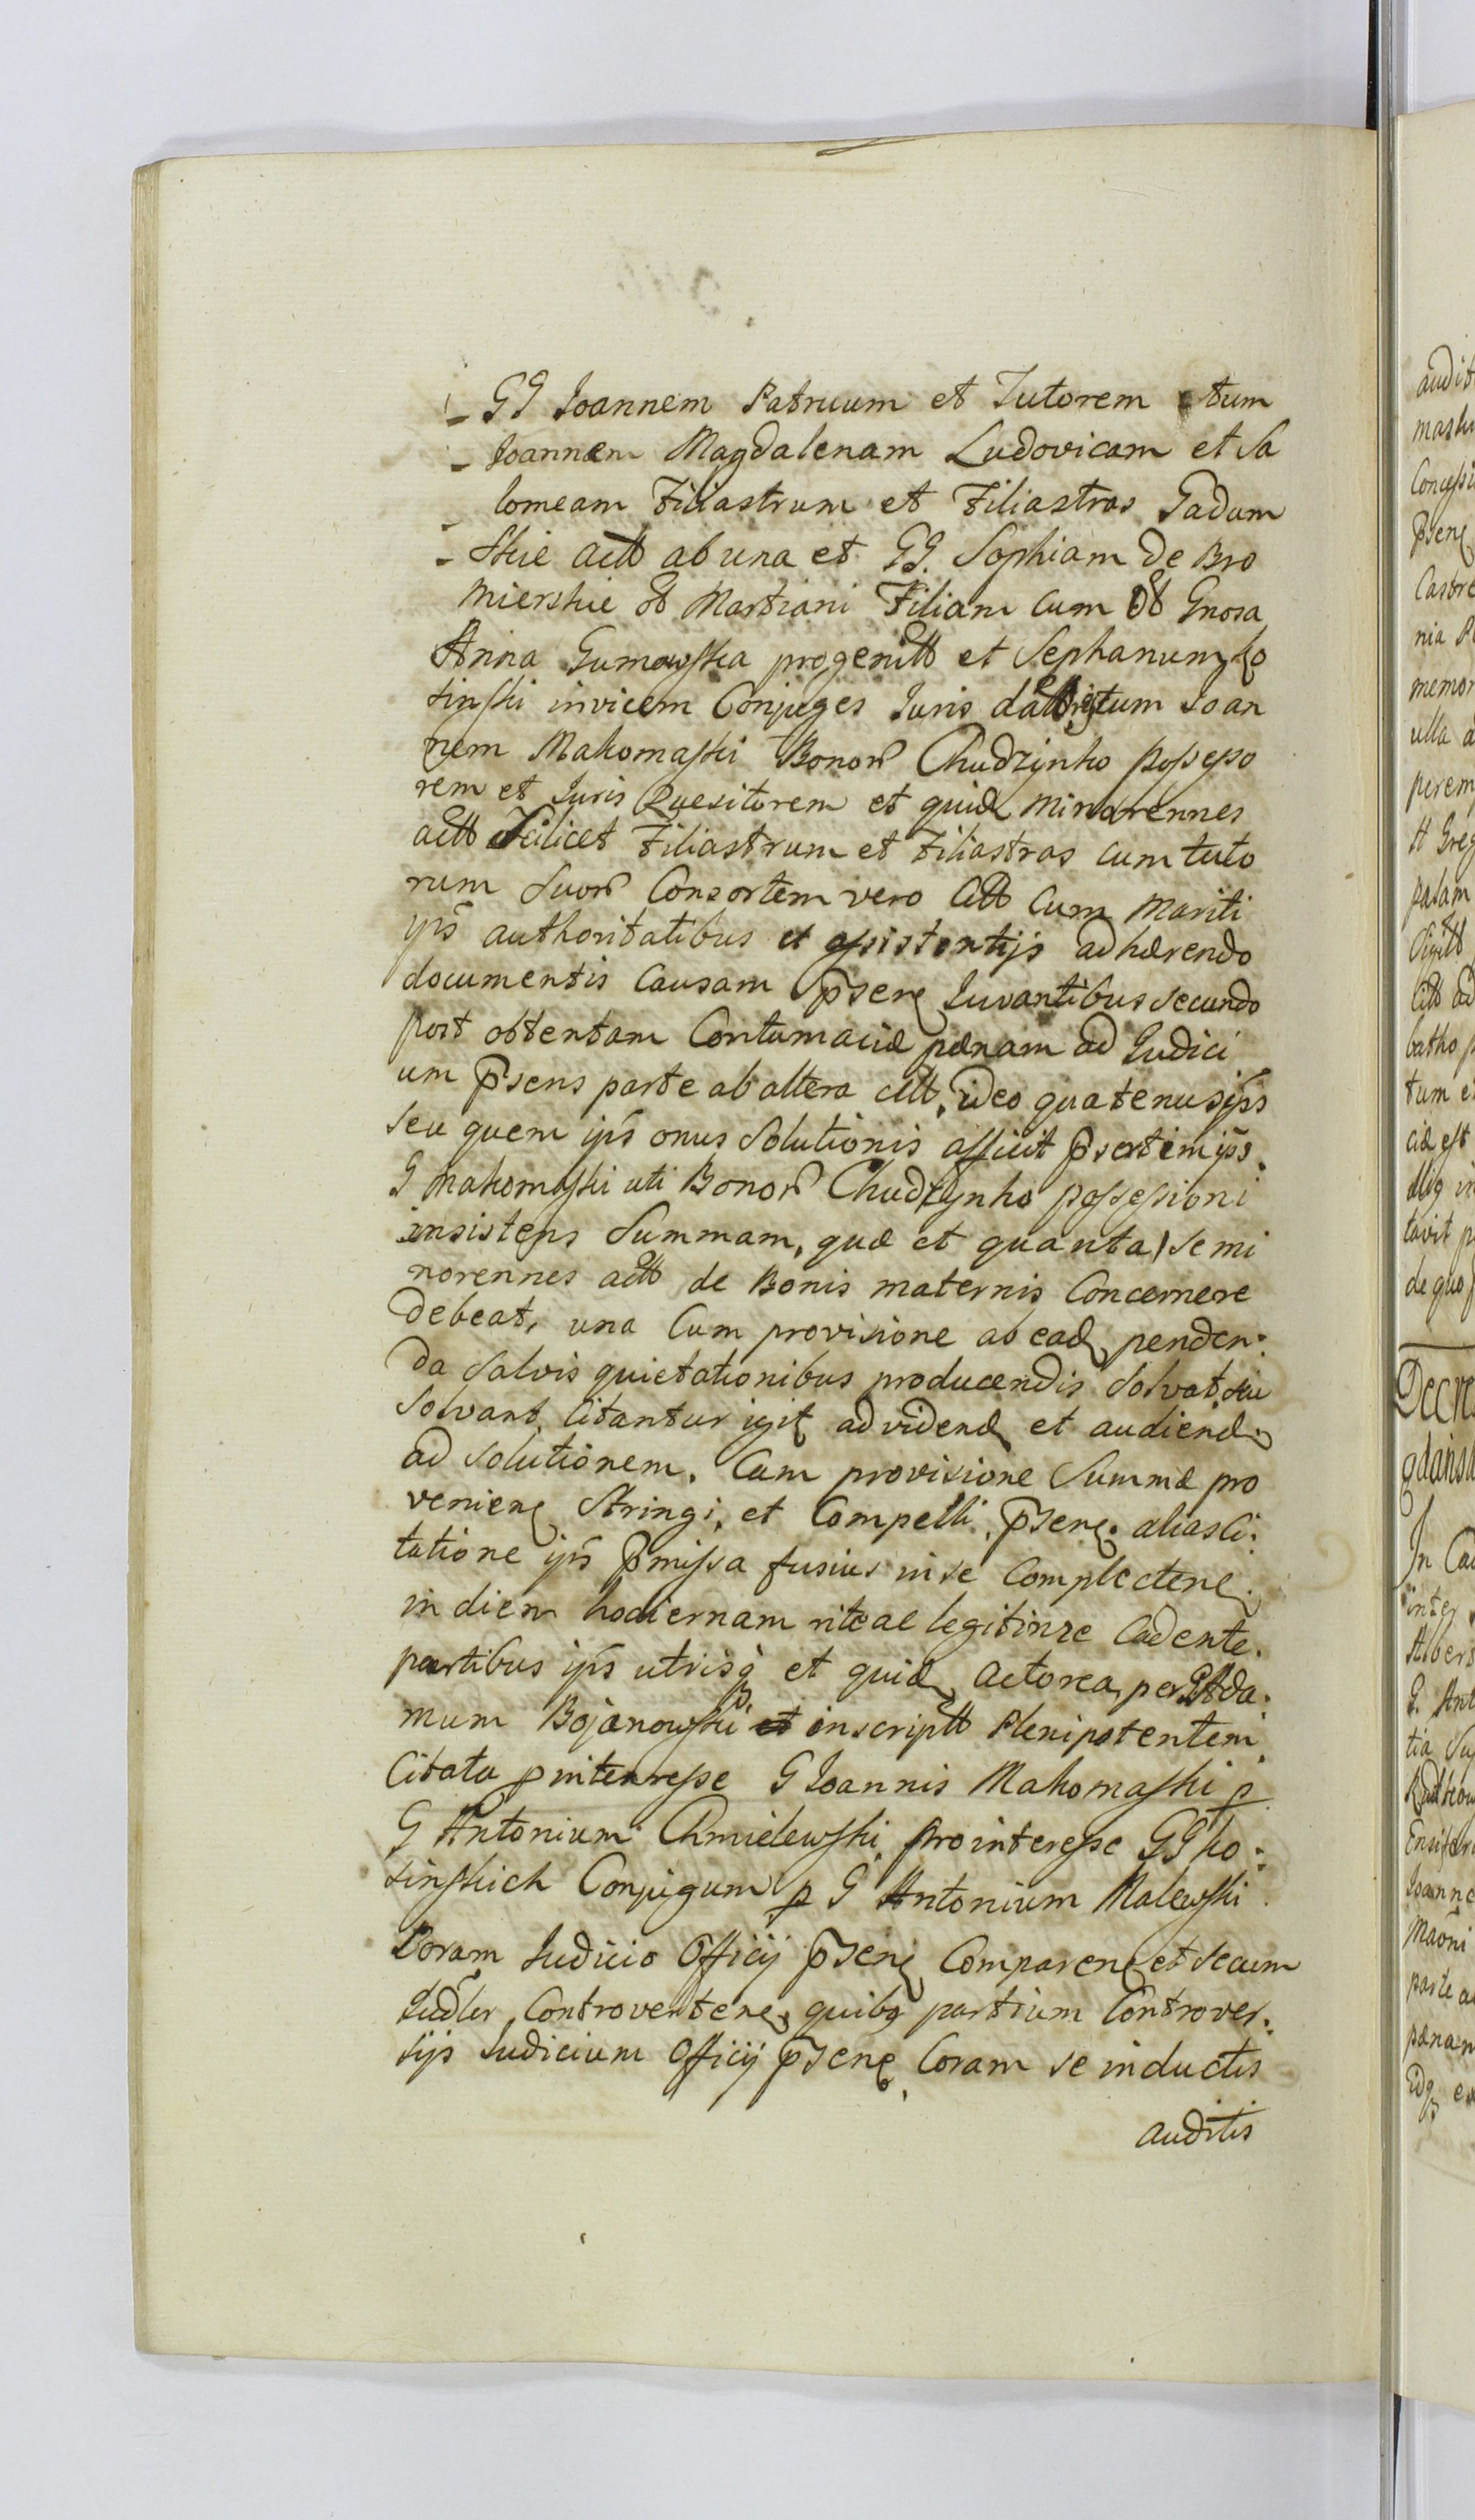 GG Joannem Patruum et Tutorem tum
Joannem Magdalenam Ludovicam et Sa
lomeam Filiastrum et Filiastras Gadom
skie actt ab una et GG. Sophiam de Bro
mierskie olt Martiani Filiam cum olt Gnosa
Anna Gumowska progenitt et Stephanum Ko
sinski invicem Conjuges Juris tum Joan
nem Makomaski Bonor Chudzynko possesso
rem et Juris Quesitorem et quid minorennes
actt scilicet Filiastrum et Filiastras cum tuto
rum suor Consortem vero Citt cum mariti
ips authoritatibus et assistentijs adhærendo
documentis Causam psen Juvantibus secundo
post obtentam Contumaciæ pænam ad Judici
um psens parte ab altera citt, ideo quatenus ips
seu quem ips onus Solutionis afficit psertim ips
G Makomaski uti Bonor Chudzynko possessioni
insistens Summam, quæ et quanta se mi
norennes actt de Bonis maternis Concernere
debeat, una Cum provisione ab ead penden:
da salvis quietationibus producendis Solvat seu
Solvant, Citantur igit ad vidend et audiend
ad Solutionem, Cum provisione Summæ pro
venien Stringi, et Compelli, psen alias Ci:
tatione ips pmissa fusius in se Complecten
in diem hodiernam rite ac legitime Cadente.
partibus ips utrisq et quid Actorea per G Ada:
mum Bojanowski inscriptt Plenipotentem
Citata p interesse G Joannis Makomaski p
G Antonium Chmielewski, pro interesse GG Ko:
sinskich Conjugum p G Antonium Malewski
Coram Judicio Officij psen Comparen et secum
Judlr Controverten, quibq partium Controver:
sijs Judicium Officij psen Coram se inductis
auditis